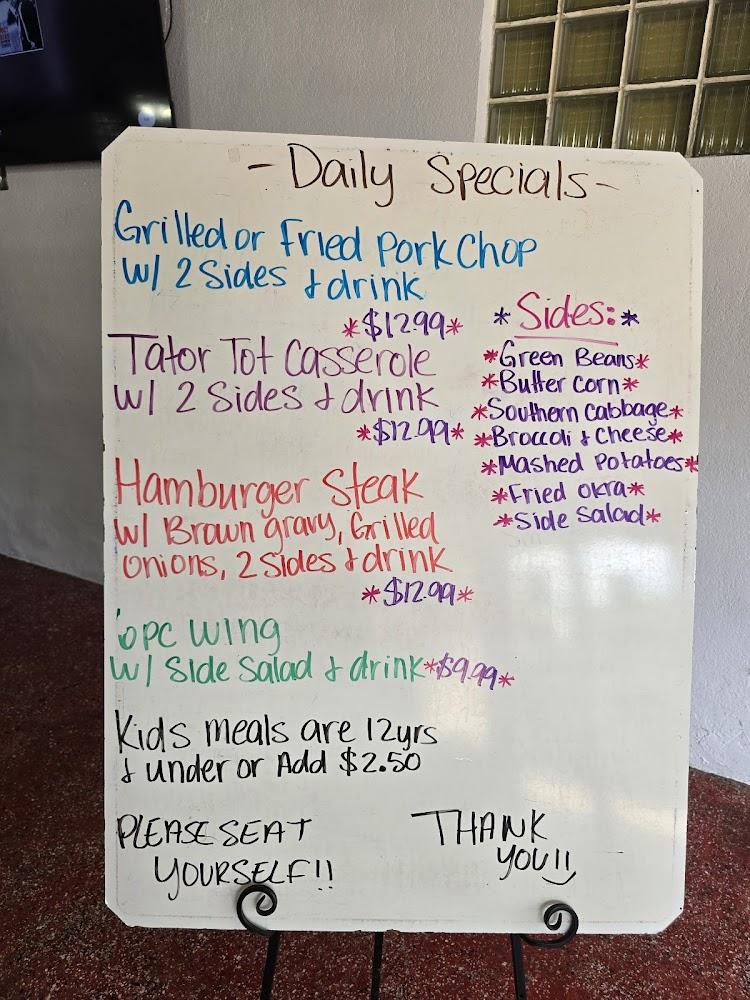 - Daily Specials -
Grilled or Fried Pork Chop
w/ 2 Sides & drink
*$12.99*
Tator Tot Casserole
w/ 2 Sides & drink
*$12.99*
Hamburger Steak
w/ Brown gravy, Grilled
onions, 2 Sides & drink
*$12.99*
6pc wing
w/ Side Salad & drink *$9.99*
Kids meals are 12yrs
& under or Add $2.50
PLEASE SEAT
YOURSELF!!
THANK
YOU!!
* Sides: *
*Green Beans*
*Butter corn*
*Southern Cabbage*
*Broccoli & Cheese*
*Mashed Potatoes*
*Fried Okra*
*Side Salad*